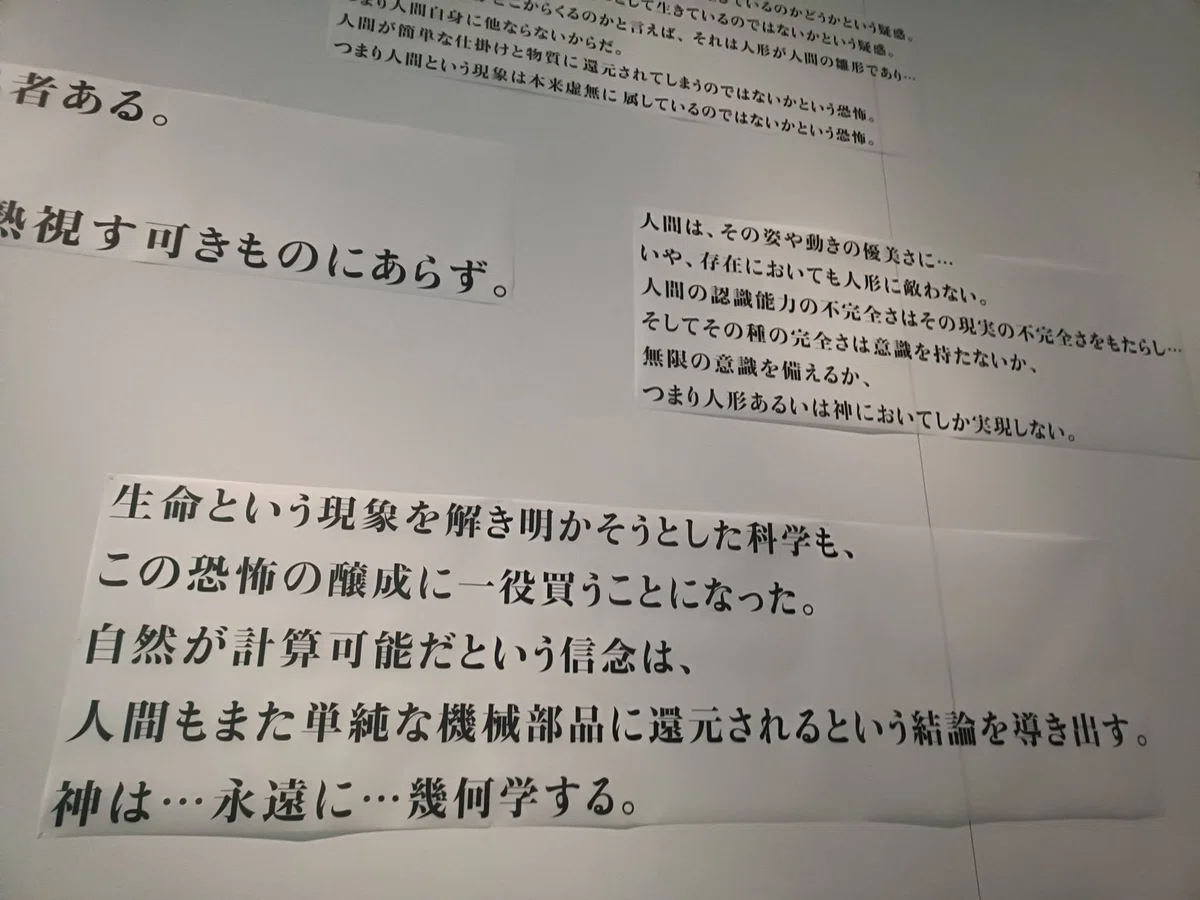 ているのかどうかという疑惑。
として生きているのではないかという疑惑。
どこからくるのかと言えば、それは人形が人間の雛形であり…
つまり人間自身に他ならないからだ。
人間が簡単な仕掛けと物質に還元されてしまうのではないかという恐怖。
つまり人間という現象は本来虚無に属しているのではないかという恐怖。
者ある。
熱視す可きものにあらず。
人間は、その姿や動きの優美さに…
いや、存在においても人形に敵わない。
人間の認識能力の不完全さはその現実の不完全さをもたらし…
そしてその種の完全さは意識を持たないか、
無限の意識を備えるか、
つまり人形あるいは神においてしか実現しない。
生命という現象を解き明かそうとした科学も、
この恐怖の醸成に一役買うことになった。
自然が計算可能だという信念は、
人間もまた単純な機械部品に還元されるという結論を導き出す。
神は…永遠に…幾何学する。